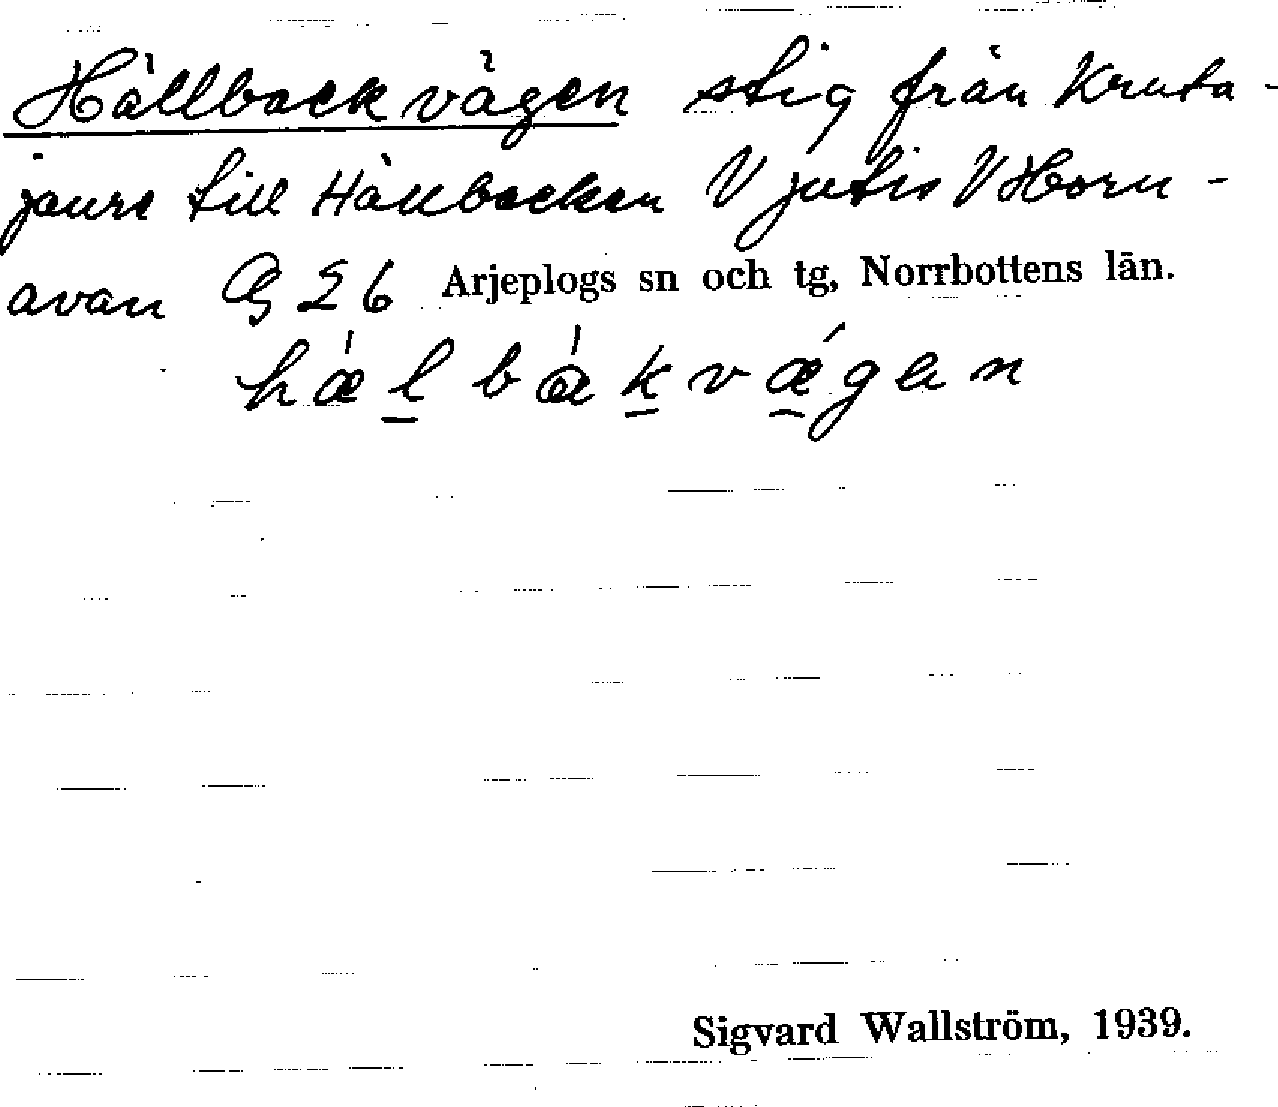 Hällbackvägen stig från Kruta-
jaure till Hällbacken V Jutis V Horn-
avan G 26 Arjeplogs sn och tg, Norrbottens län.
hælbakvægen
Sigvard Wallström, 1939.